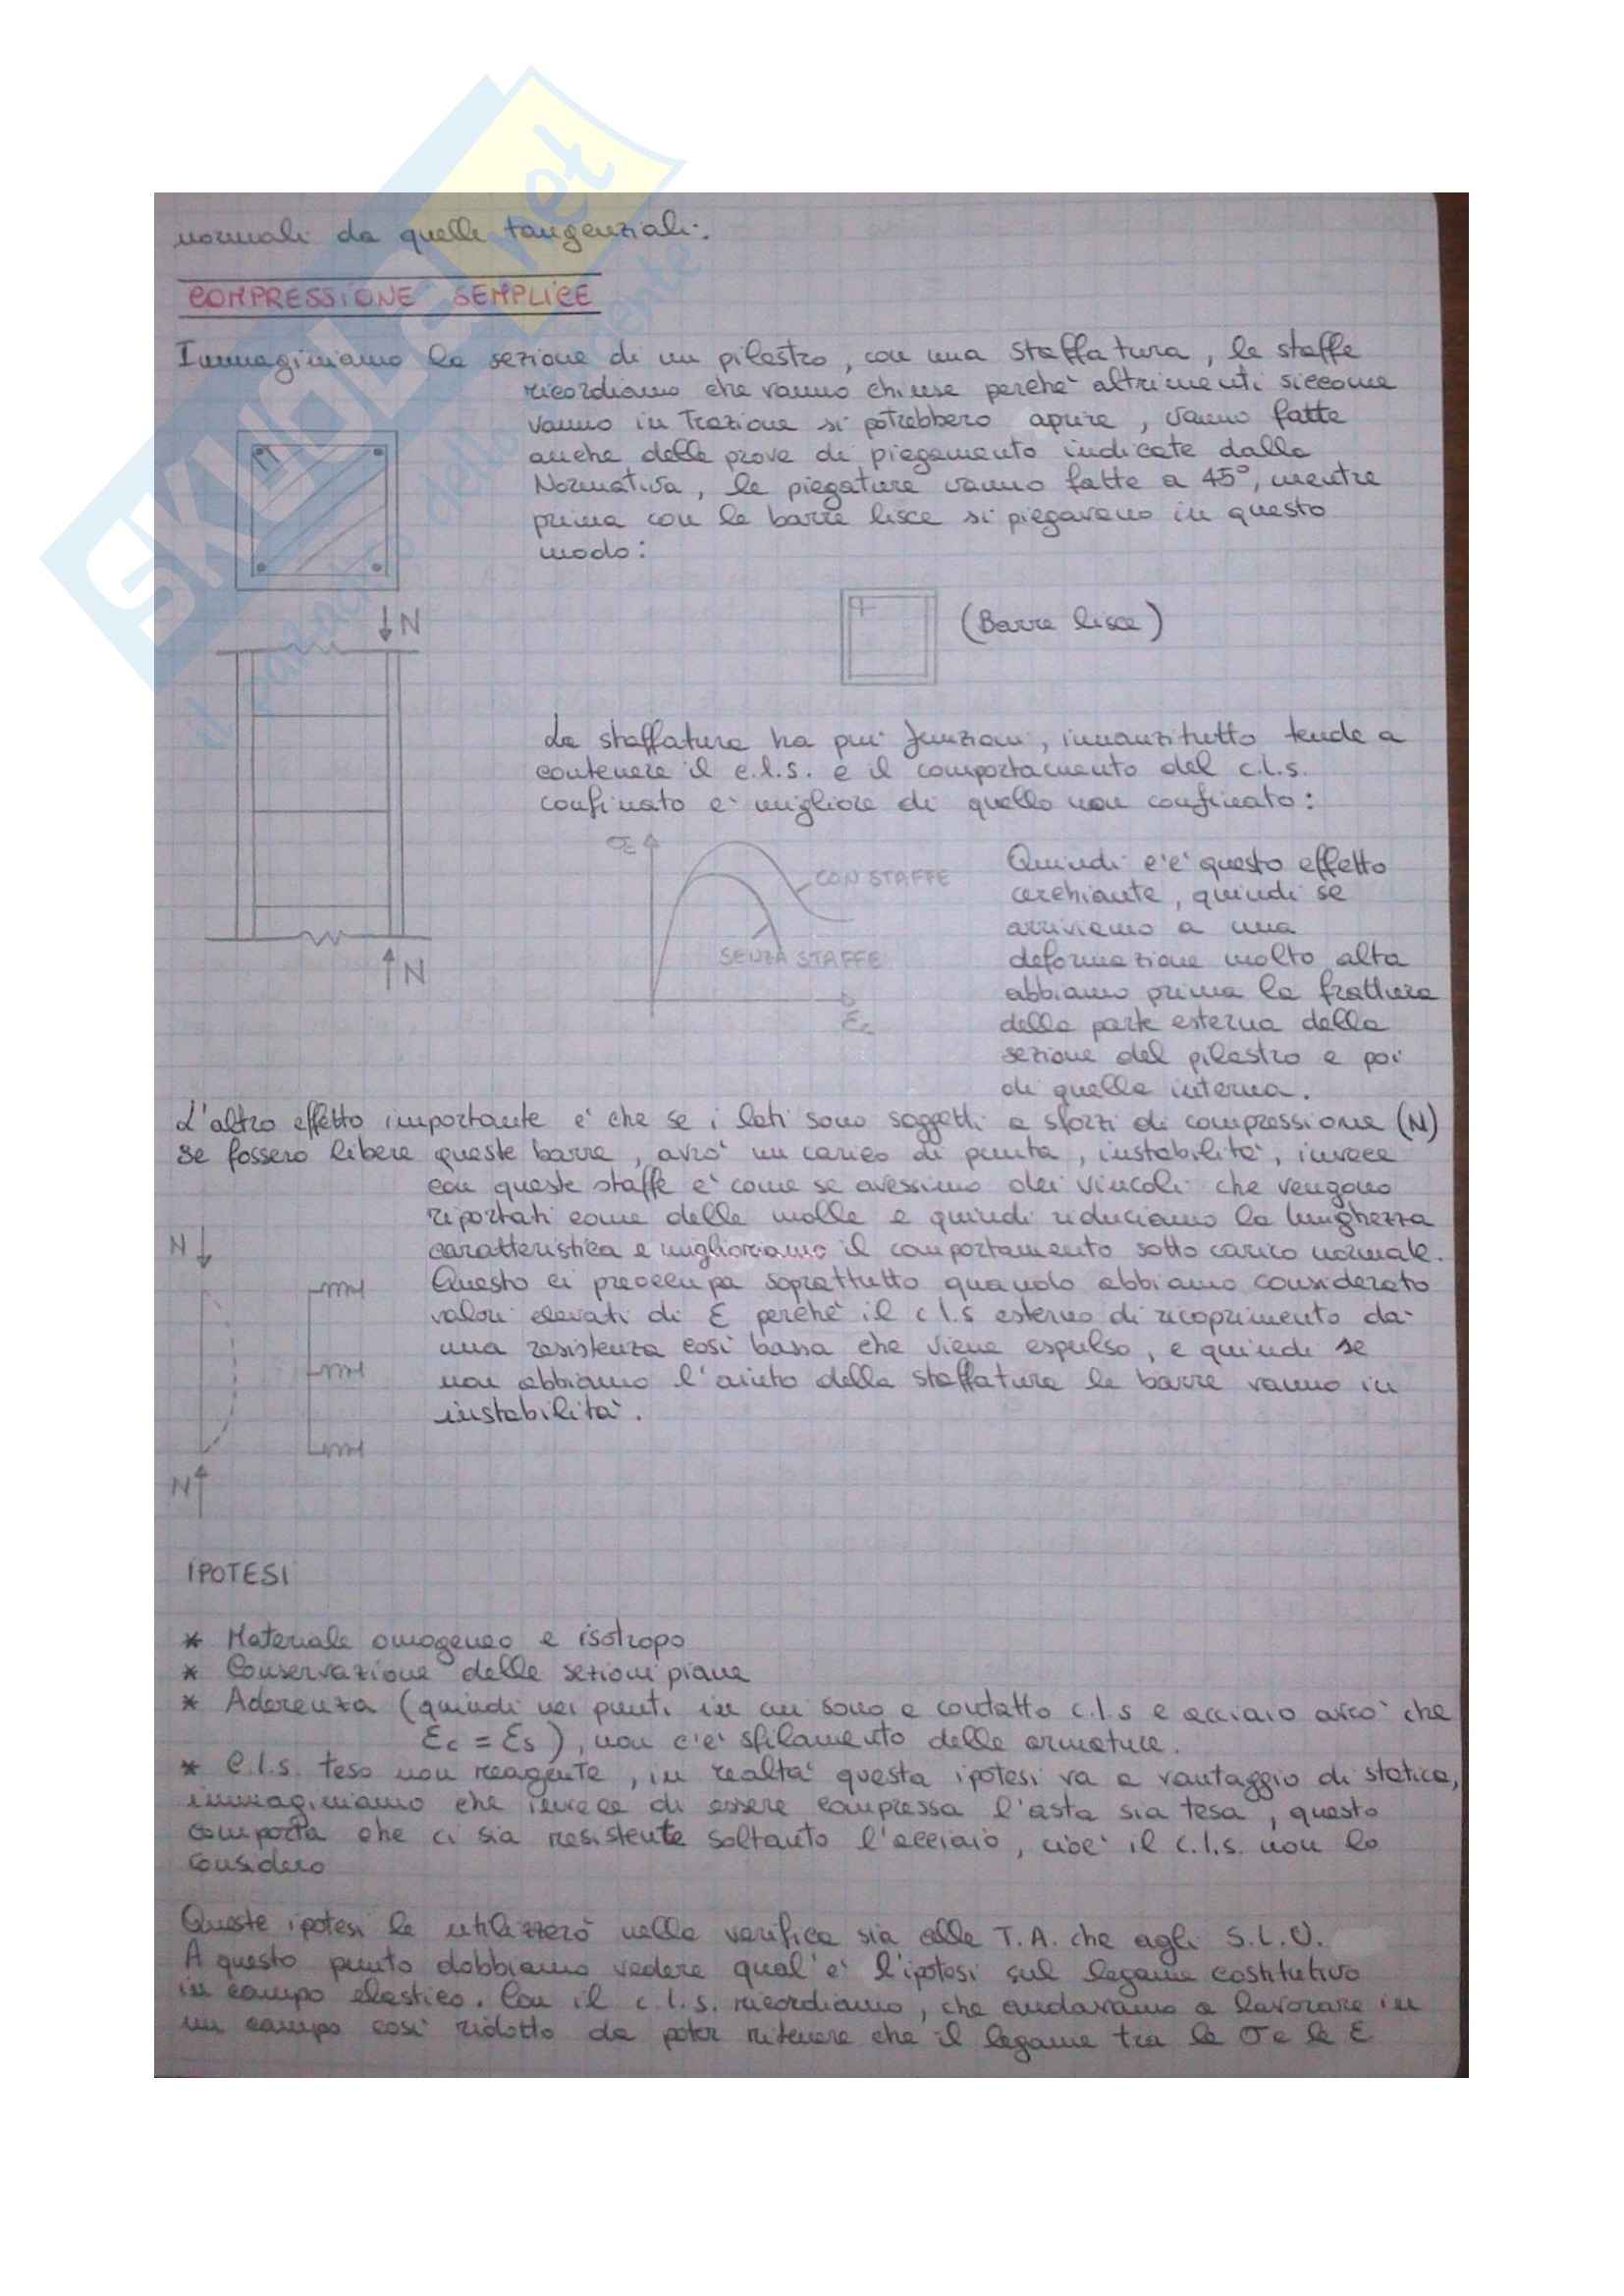 normali da quelle tangenziali.
COMPRESSIONE SEMPLICE
Immaginiamo la sezione di un pilastro, con una staffatura, le staffe
ricordiamo che vanno chiuse perché altrimenti siccome
vanno in trazione si potrebbero aprire, vanno fatte
anche delle prove di piegamento indicate dalla
Normativa, le piegature vanno fatte a 45°, mentre
prima con le barre lisce si piegavano in questo
modo:
N
(Barre lisce)
La staffatura ha più funzioni, innanzitutto tende a
contenere il c.l.s. e il comportamento del c.l.s.
confinato è migliore di quello non confinato:
σc
CON STAFFE
SENZA STAFFE
εc
N
Quindi c'è questo effetto
cerchiante, quindi se
arriviamo a una
deformazione molto alta
abbiamo prima la frattura
della parte esterna della
sezione del pilastro e poi
di quella interna.
L'altro effetto importante è che se i lati sono soggetti a sforzi di compressione (N)
se fossero libere queste barre, avrò un carico di punta, instabilità, invece
con queste staffe è come se avessimo dei vincoli che vengono
riportati come delle molle e quindi riduciamo la lunghezza
caratteristica e miglioriamo il comportamento sotto carico normale.
Questo ci preoccupa soprattutto quando abbiamo considerato
valori elevati di ε perché il c.l.s esterno di ricoprimento dà
una resistenza così bassa che viene espulso, e quindi se
non abbiamo l'aiuto della staffatura le barre vanno in
instabilità.
N
N
IPOTESI
* Materiale omogeneo e isotropo
* Conservazione delle sezioni piane
* Aderenza (quindi nei punti in cui sono a contatto c.l.s e acciaio avrò che
εc = εs), non c'è sfilamento delle armature.
* C.l.s. teso non reagente, in realtà questa ipotesi va a vantaggio di statica,
immaginiamo che invece di essere compressa l'asta sia tesa, questo
comporta che ci sia resistente soltanto l'acciaio, cioè il c.l.s. non lo
considero
Queste ipotesi le utilizzerò nella verifica sia alle T.A. che agli S.L.U.
A questo punto dobbiamo vedere qual'è l'ipotesi sul legame costitutivo
in campo elastico. Con il c.l.s. ricordiamo, che andavamo a lavorare in
un campo così ridotto da poter ritenere che il legame tra le σ e le ε
SKUOLA.net